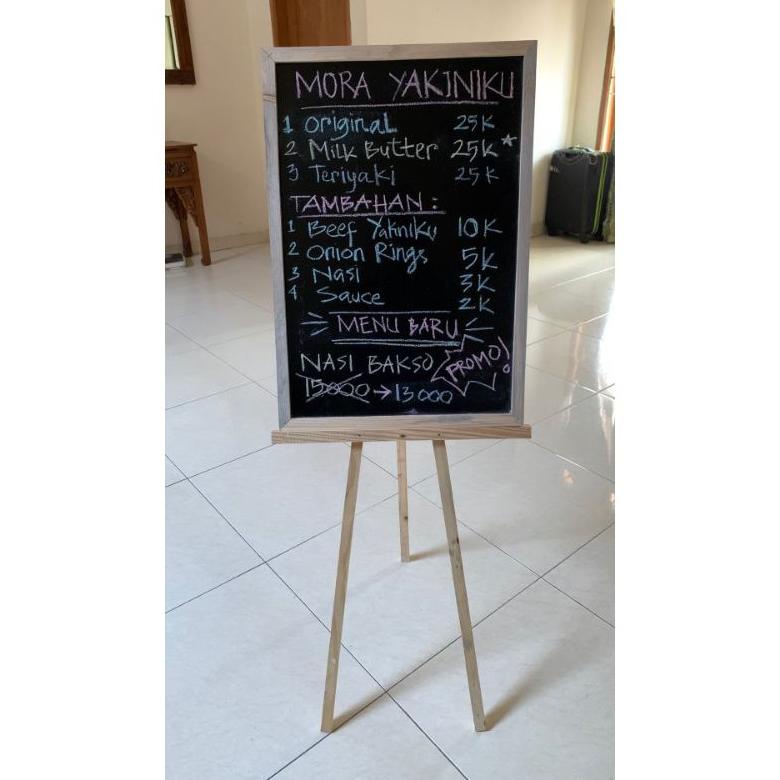 MORA YAKINIKU
1 Original 25K
2 Milk Butter 25K*
3 Teriyaki 25K
TAMBAHAN :
1 Beef Yakniku 10K
2 Onion Rings 5K
3 Nasi 3K
4 Sauce 2K
MENU BARU
NASI BAKSO PROMO!
15000 → 13000